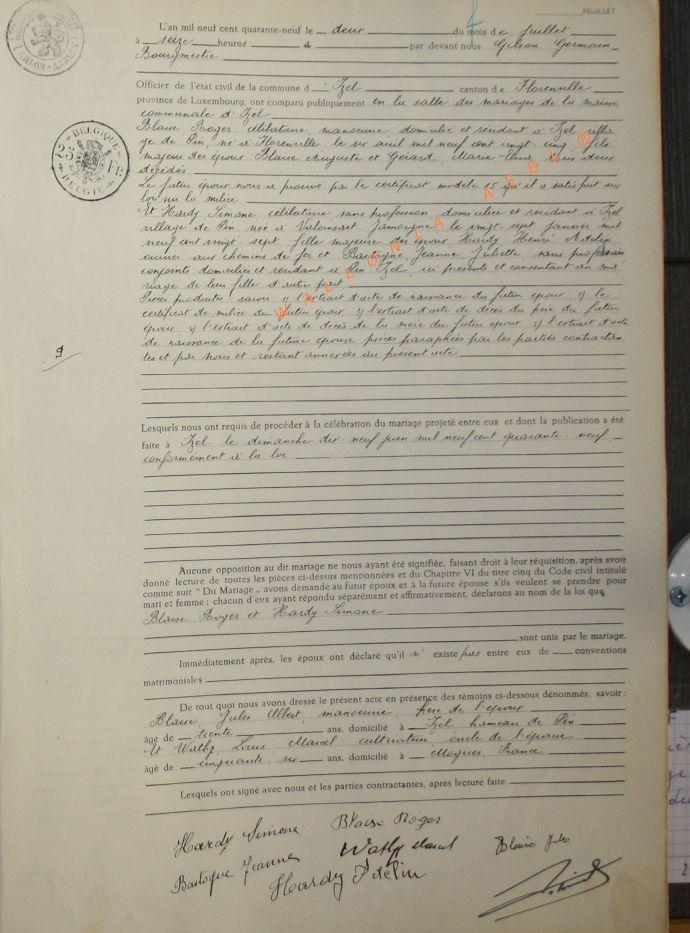 FEUILLET
L'an mil neuf cent quarante-neuf le deux du mois de juillet
à seize heures par devant nous Gilson Germain
Bourgmestre
Officier de l'état civil de la commune d'Izel canton de Florenville
province de Luxembourg, ont comparu publiquement en la salle des mariages de la maison
communale d'Izel
Blaise Roger célibataire, manoeuvre, domicilié et résidant à Izel villa-
ge de Pin, né à Florenville le six avril mil neuf cent vingt-cinq fils
majeur des époux Blaise Auguste et Gérard, Marie tous deux
décédés
Le futur époux nous a prouvé par le certificat modèle 15 qu'il a satisfait aux
lois sur la milice
Et Hardy Simone célibataire sans profession, domiciliée et résidant à Izel
village de Pin née à Valansart Jamoigne le vingt-sept janvier mil
neuf cent vingt-sept fille majeure des époux Hardy Henri Adelin
ouvrier aux chemins de fer et Bastogne Jeanne Juliette sans profession
conjoints domiciliés et résidant à Pin Izel, ici présents et consentant au ma
riage de leur fille d'autre part
Pièces produites savoir 1) l'extrait d'acte de naissance du futur époux, 2) le
certificat de milice du futur époux, 3) l'extrait d'acte de décès du père du futur
époux, 4) l'extrait d'acte de décès de la mère du futur époux, 5) l'extrait d'acte
de naissance de la future épouse, pièces paraphées par les parties contractan
tes et par nous et restant annexées au présent acte
9
Lesquels nous ont requis de procéder à la célébration du mariage projeté entre eux et dont la publication a été
faite à Izel le dimanche dix-neuf juin mil neuf cent quarante-neuf
conformément à la loi
Aucune opposition au dit mariage ne nous ayant été signifiée, faisant droit à leur réquisition, après avoir
donné lecture de toutes les pièces ci-dessus mentionnées et du Chapitre VI du titre cinq du Code civil intitulé
comme suit " Du Mariage " avons demandé au futur époux et à la future épouse s'ils veulent se prendre pour
mari et femme ; chacun d'eux ayant répondu séparément et affirmativement, déclarons au nom de la loi que
Blaise Roger et Hardy Simone
sont unis par le mariage.
Immédiatement après, les époux ont déclaré qu'il n'existe pas entre eux de conventions
matrimoniales
De tout quoi nous avons dressé le présent acte en présence des témoins ci-dessous dénommés, savoir :
Blaise, Jules Albert, manoeuvre, frère de l'époux
âgé de trente ans, domicilié à Izel hameau de Pin
Et Wathy, Louis Marcel cultivateur, oncle de l'épouse
âgé de cinquante-six ans, domicilié à Mogues, France
Lesquels ont signé avec nous et les parties contractantes, après lecture faite
Hardy Simone Blaise Roger
Wathy Marcel Blaise Jules
Bastogne Jeanne Hardy Adelin
BELGIQUE
BELGIË
WALLONIA ASBL